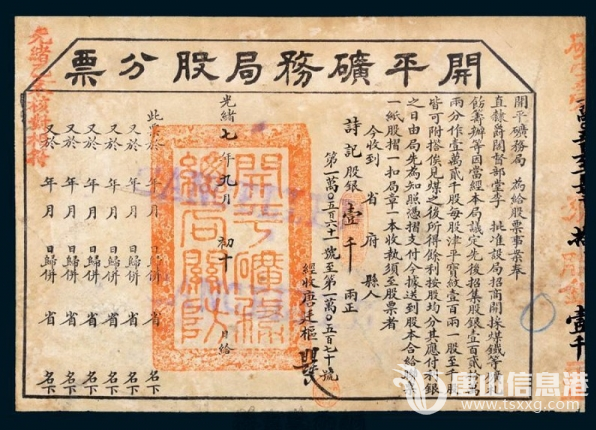 開平礦務局股分票
開平礦務局 為給股票事案奉
直隸爵閣督部堂李 批准設局招商開採煤鐵等
飭籌辦等因當經本局議定先後招集股銀壹百貳拾萬
兩分作壹萬貳千股每股津平寶紋壹百兩一股至千股
皆可附搭俟見煤之後所得餘利按股均分其應付利銀
之日由局先為知照憑摺支付今據送到股本合給
一紙股摺一扣局章一本收執須至股票者
今收到 省 府 縣人
詩記 股銀壹千 兩正
第一萬〇五百六十一號至第一萬〇五百七十號
經收唐廷樞
光緒七年九月 初十 日給
此票於 年 月 日歸併 省 名下
又於 年 月 日歸併 省 名下
又於 年 月 日歸併 省 名下
又於 年 月 日歸併 省 名下
又於 年 月 日歸併 省 名下
又於 年 月 日歸併 省 名下
唐山信息港
www.tsxxg.com